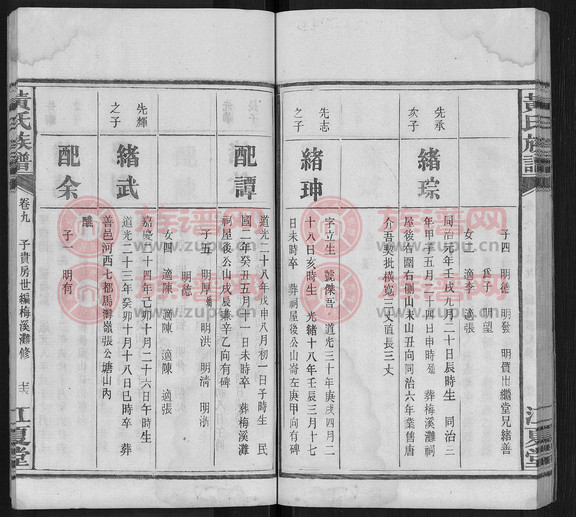 黃氏族譜
江夏堂
子四 明徳 明發 明價出繼堂兄緒善
為子 明望
女一 適李 適張
先承
次子
緒琮
同治元年壬戌九月二十日辰時生 同治三
年甲子五月二十四日申時歿 葬梅溪灘祠
屋後右圍右側山未山丑向同治六年業舊唐
介吾契批橫寬三丈直長三丈
先志
之子
緒珅
字立生 號傑吾 道光三十年庚戌四月二
十八日亥時生 光緒十八年壬辰三月十七
日未時卒 葬祠屋後公山崙左庚甲向有碑
配譚
道光二十八年戊申八月初一日子時生 民
國二年癸丑五月十一日未時卒 葬梅溪灘
祠屋後公山戌辰兼辛乙向有碑
子五 明厚 明洪 明清 明浙
明徳
女四 適陳 適陳 適張
先輝
之子
緒武
嘉慶二十四年己卯十月二十六日午時生
道光二十三年癸卯十月十八日巳時卒 葬
善邑河西七都馬灣嶺張公塘山內
配余
醮
子一 明有
黃氏族譜
卷九 子貴房世編梅溪灘修
江夏堂
族譜网